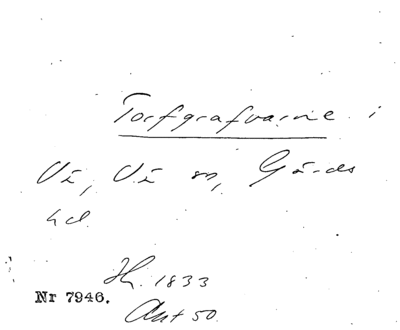 Torfgrafvarne i
Vä, Vä sn, Gärds
hd.
H. 1833
Nr 7946.
Aht 50.